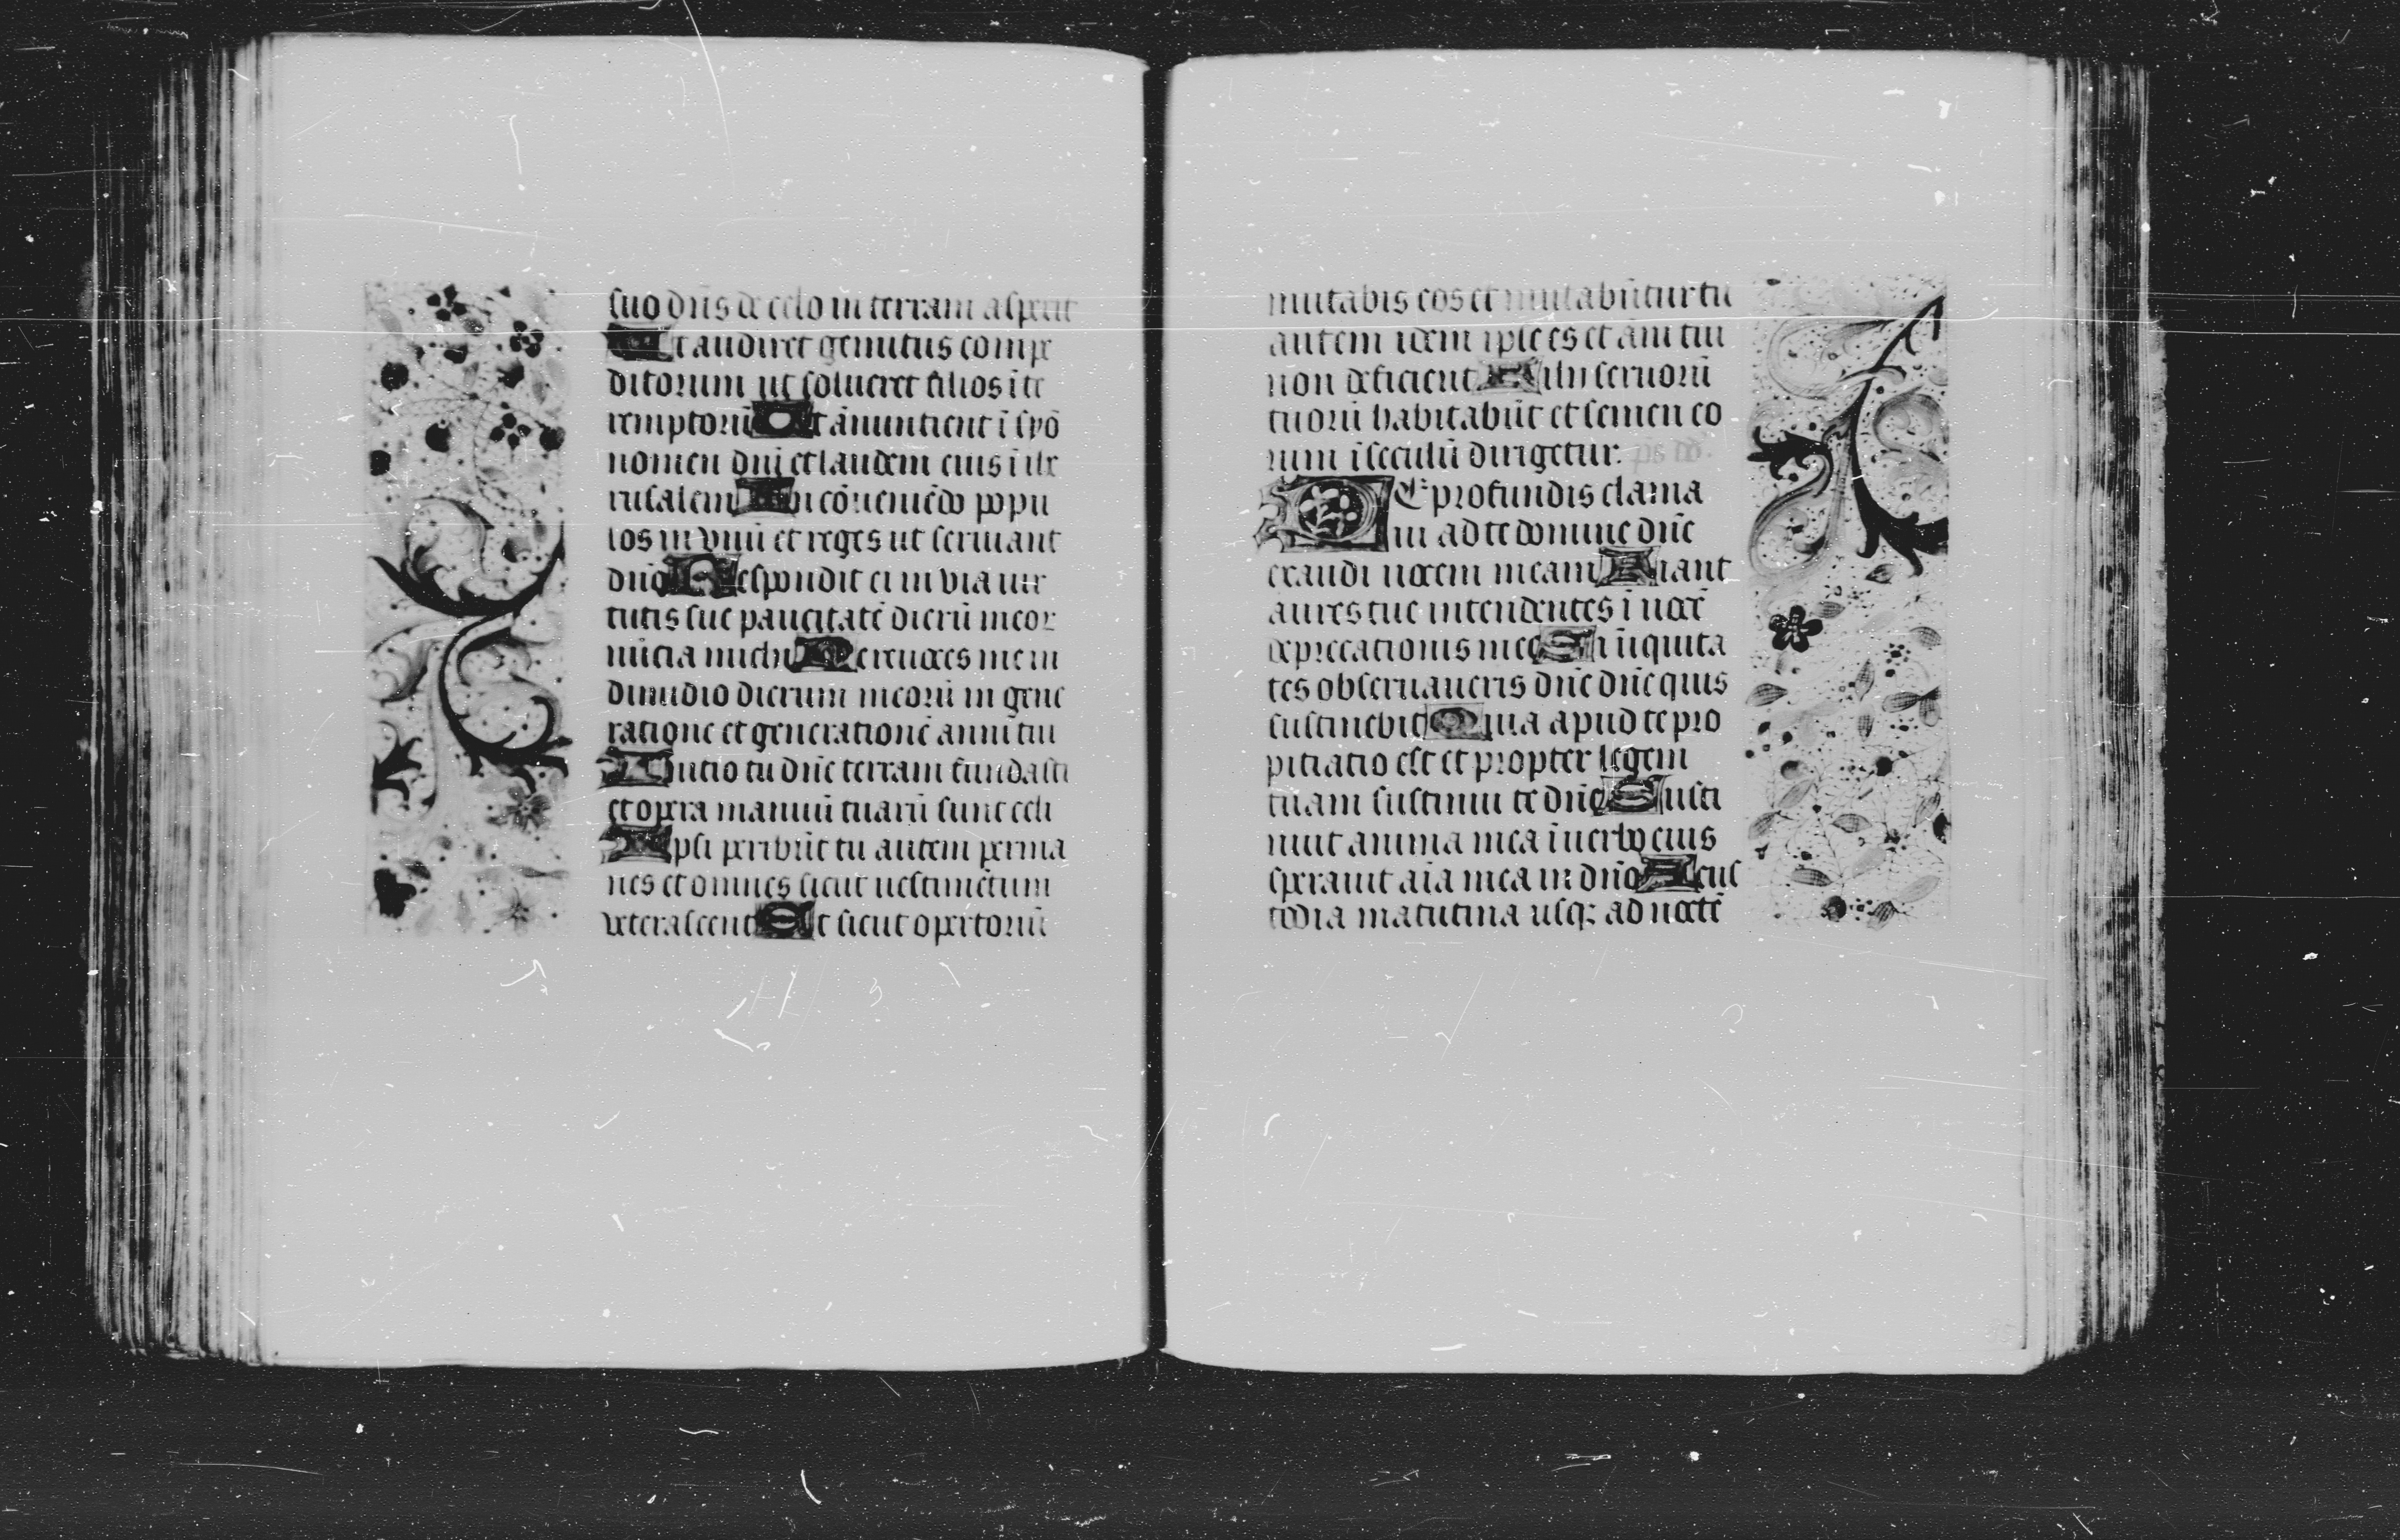 suo dn̄s de celo in terram aspexit
Ut audiret gemitus compe
ditorum ut solueret filios īte
remptorū Ut ānuntient ī syō
nomen dni et laudem eius ī ihe
rusalem In cōueniēdo popu
los in vnū et reges ut seruiant
dnō Respondit ei in via uir
tutis sue paucitatē dierū meor
nūcia michi Ne reuoces me in
dimidio dierum meorū in gene
ratione et generationē anni tui
Initio tu dn̄e terram fundasti
et opera manuū tuarū sunt celi
Ipsi peribūt tu autem perma
nes et omnes sicut uestimētum
veterascent Et sicut opertoriū
mutabis eos et mutabūtur tu
autem idem ipse es et āni tui
non deficient Filii seruorū
tuorū habitabūt et semen eo
rum ī seculū dirigetur. ps dd.
DE profundis clama
ui ad te domine dn̄e
exaudi uocem meam Fiant
aures tue intendentes ī uocē
deprecationis mee Si īiquita
tes obseruaueris dn̄e dn̄e quis
sustinebit Quia apud te pro
pitiatio est et propter legem
tuam sustinui te dn̄e Susti
nuit anima mea ī uerbo eius
sperauit aīa mea in dnō A cus
todia matutina usq; ad noctē